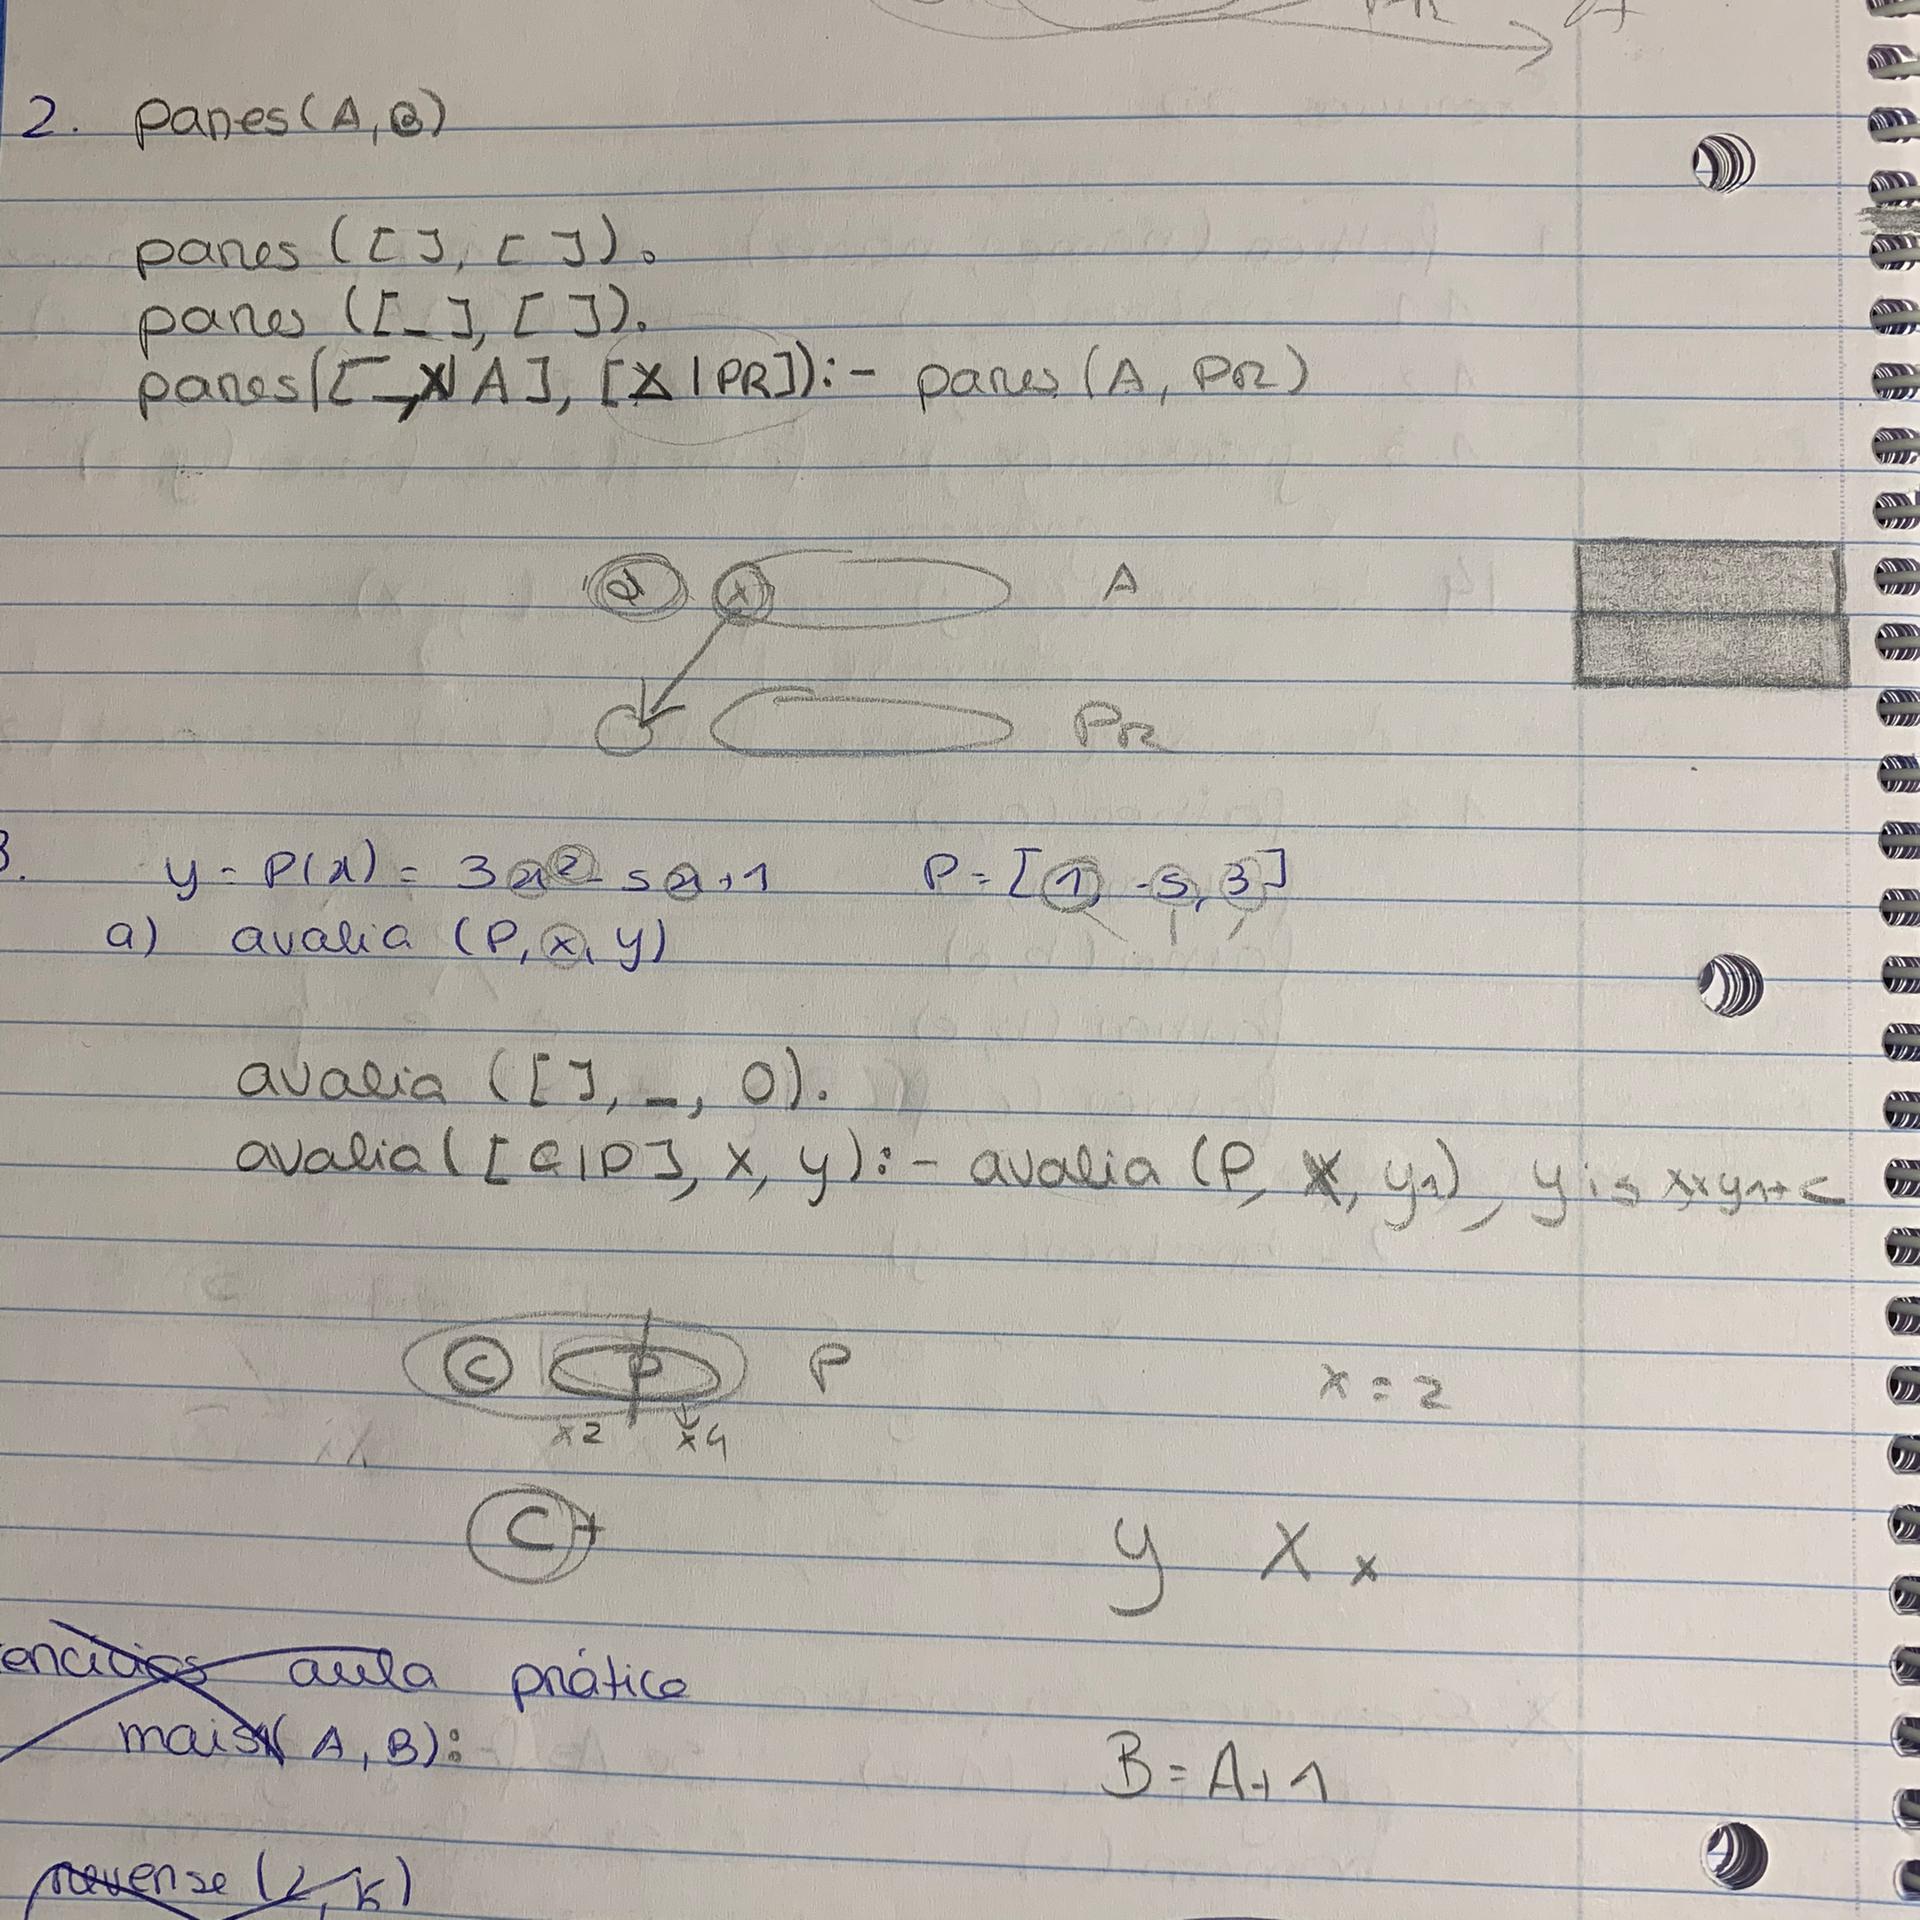 2. pares(A, B)
pares ([ ], [ ]).
pares ([_], [ ]).
pares([_,X|A], [X|PR]):- pares (A, PR)
X A
PR
3. y = P(x) = 3x² - 5x + 1 P = [1, -5, 3]
a) avalia (P, x, y)
avalia ([ ], _, 0).
avalia ([C|P], X, y):- avalia (P, X, y1), y is x*y1+c
C P P x = 2
x2 x4
C + y X x
aula prática
mais1( A, B):-
B = A + 1
reverse (L, K)